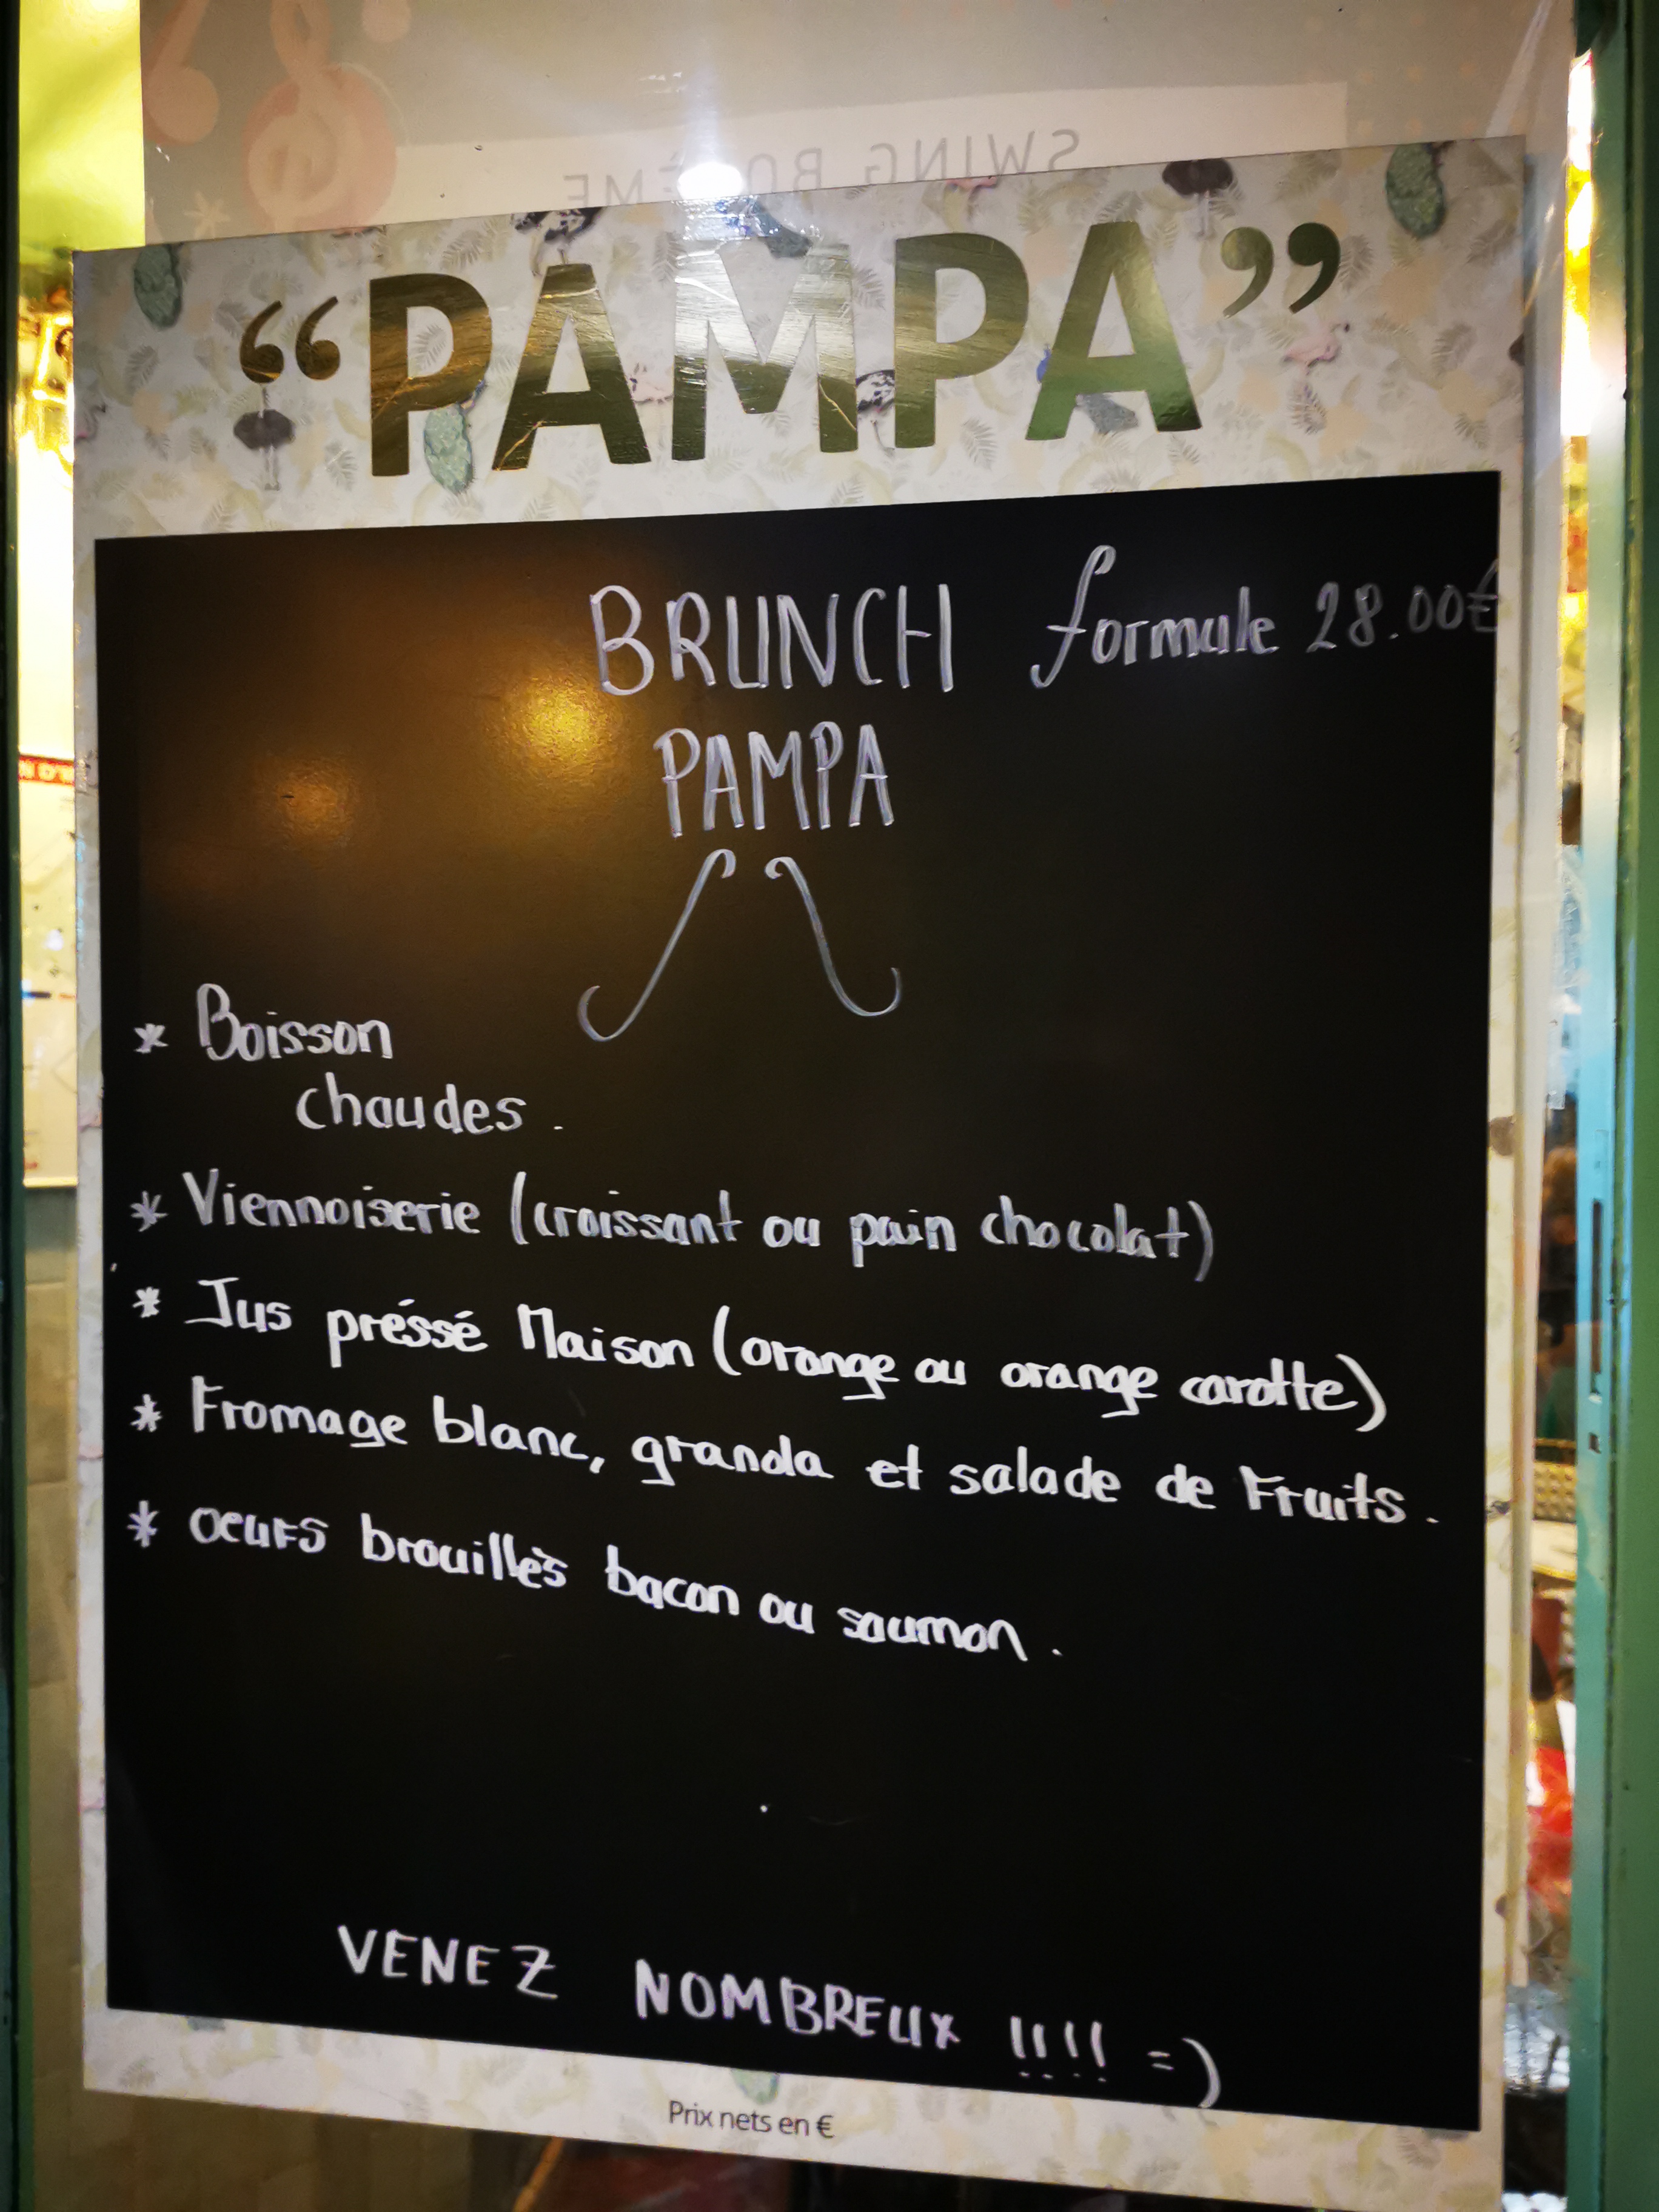 SWING BOHÈME
“PAMPA”
BRUNCH formule 28.00€
PAMPA
* Boisson
chaudes.
* Viennoiserie (croissant ou pain chocolat)
* Jus préssé Maison (orange ou orange carotte)
* Fromage blanc, granola et salade de Fruits.
* oeufs brouillés bacon ou saumon.
VENEZ NOMBREUX !!!! =)
Prix nets en €